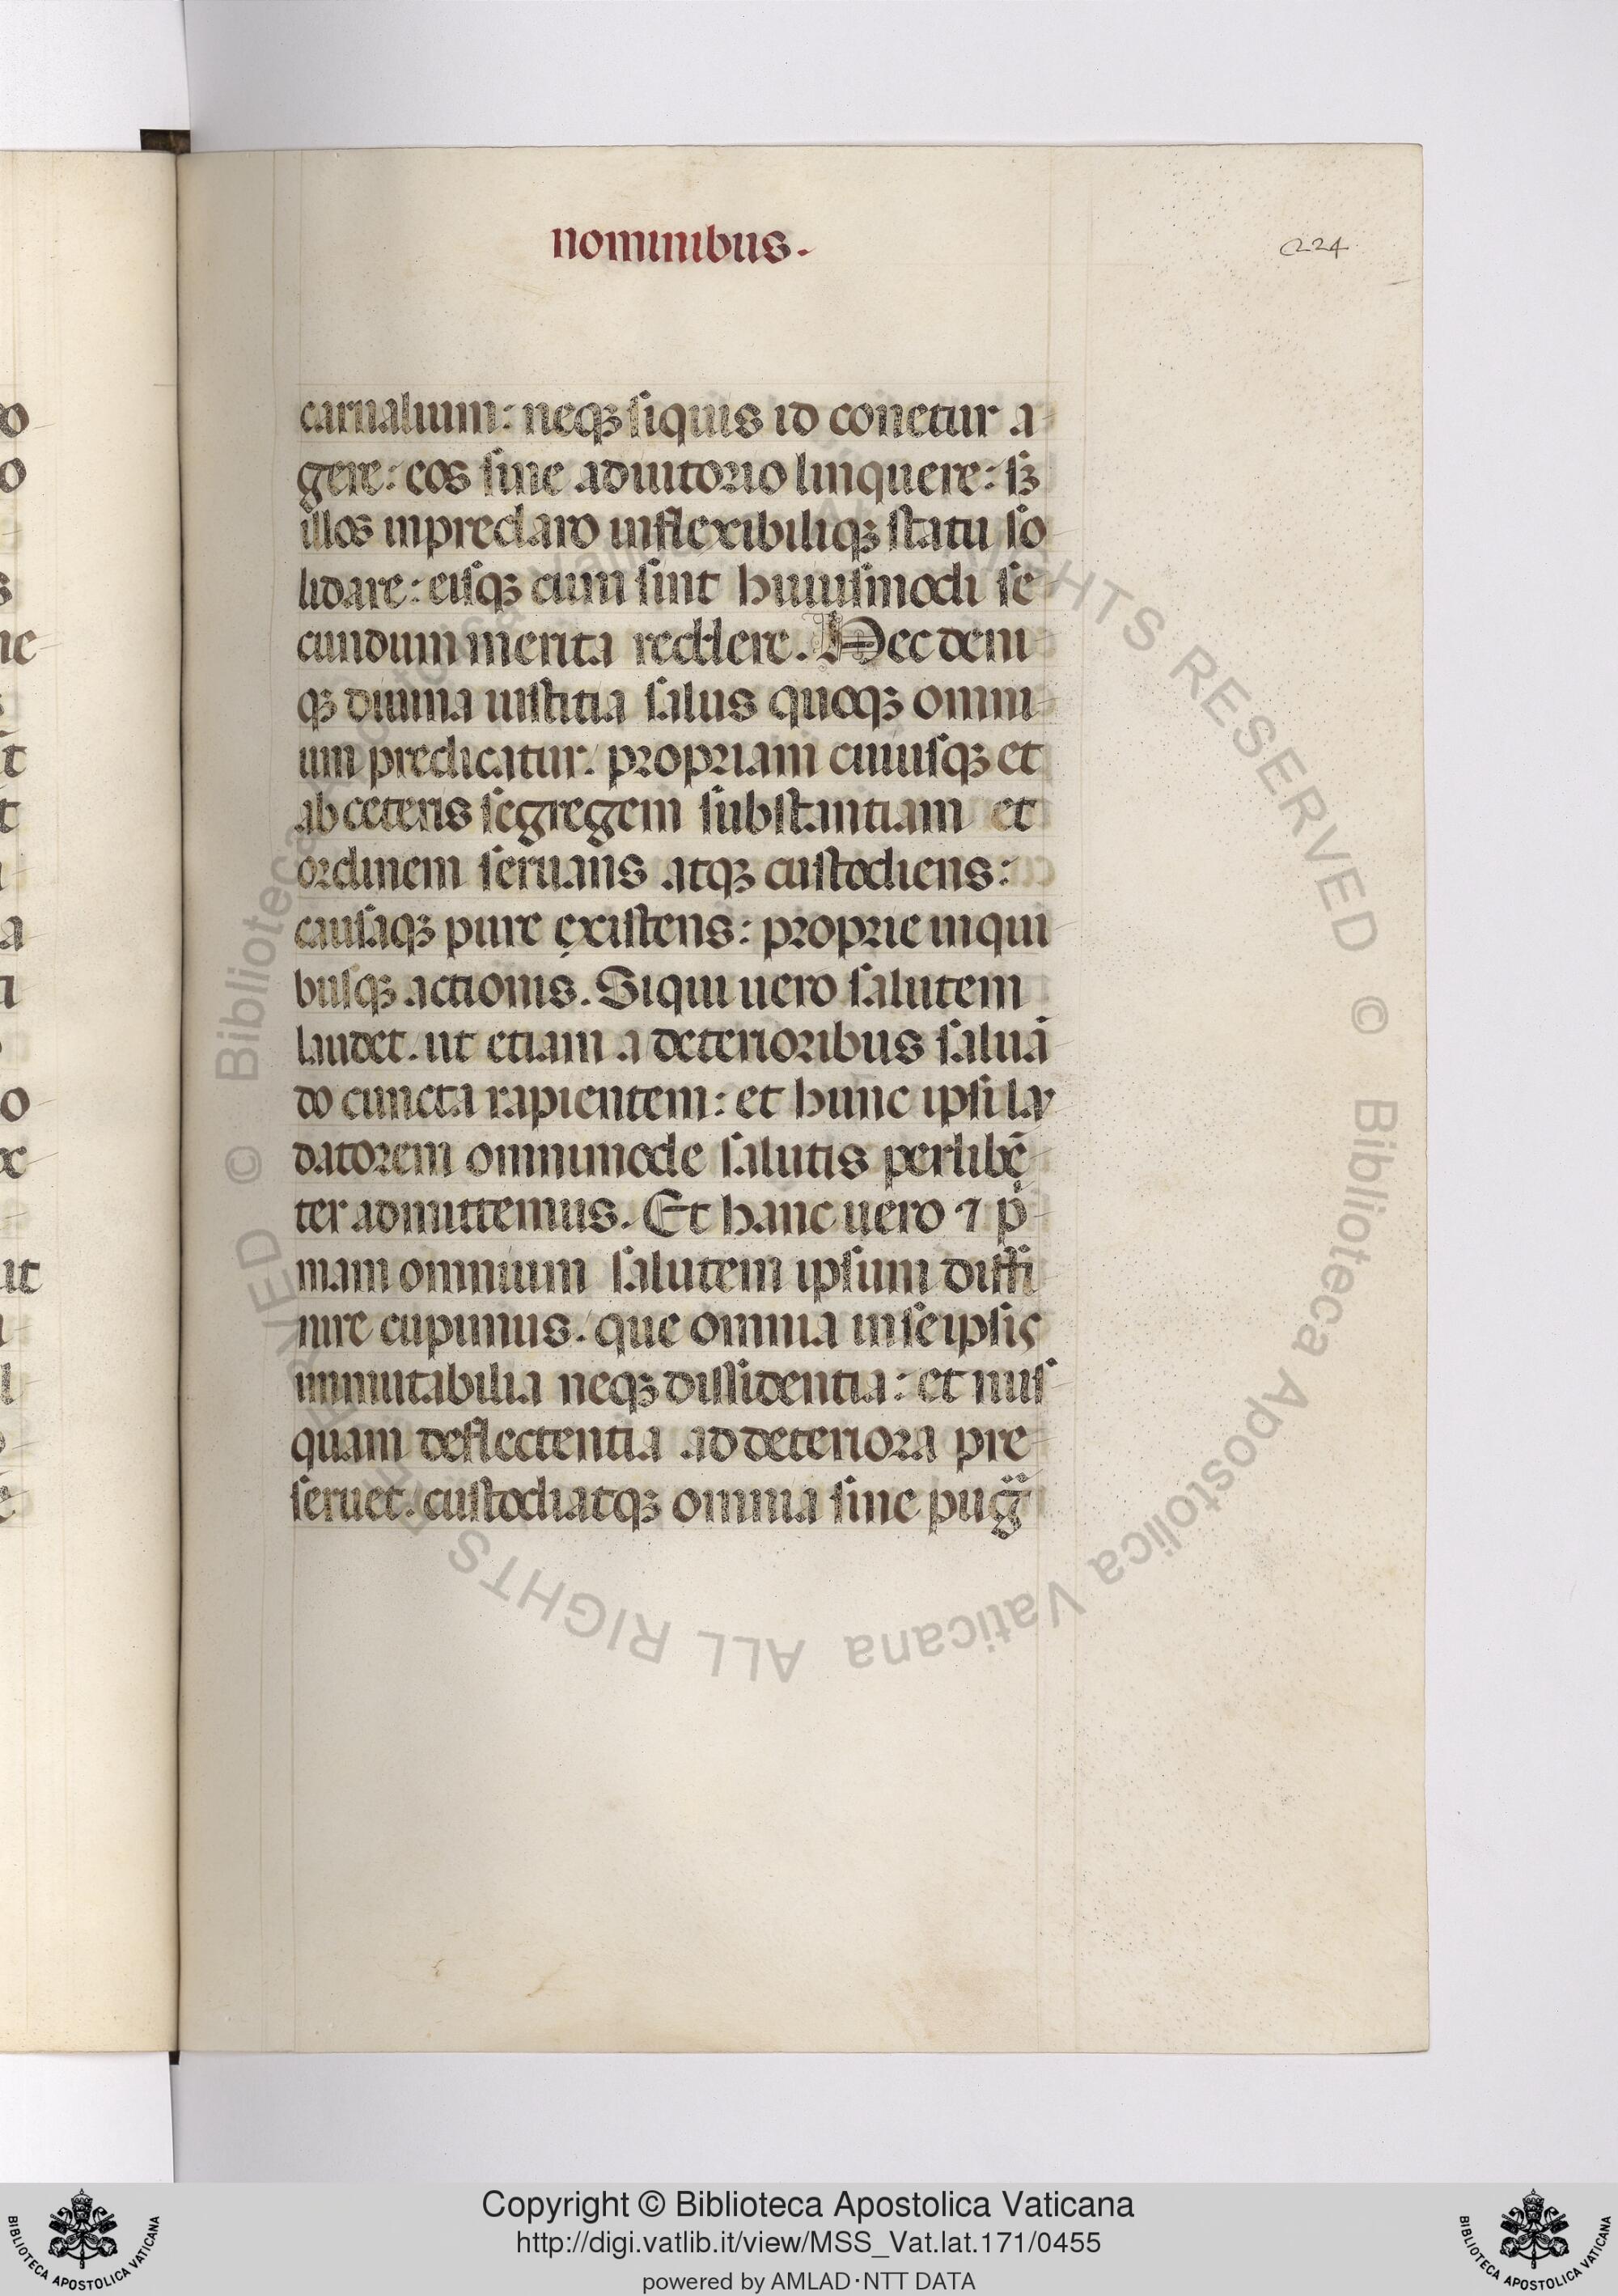 nominibus.
224
carnalium: neqꝫ siquis id conetur a
gere: eos sine adiutorio linquere: sꝫ
illos inpreclaro inflexibiliqꝫ statu so
lidare: eisqꝫ cum sint huiusmodi se
cundum merita reddere. Hec deni
qꝫ diuina iustitia salus quoqꝫ omni
um predicatur. propriam cuiusqꝫ et
ab ceteris segregem substantiam et
ordinem seruans atqꝫ custodiens:
causaqꝫ pure existens: proprie inqui
busqꝫ actionis. Siqui uero salutem
laudet. ut etiam a deterioribus saluā
do cuncta rapientem: et hunc ipsi lau
datorem omnimode salutis perlibē
ter admittemus. Et hanc uero ⁊ pⁱ
mam omnium salutem ipsum diffi
nire cupimus. que omnia inseipsis
immutabilia neqꝫ dissidentia: et nus
quam deflectentia ad deteriora pre
seruet. custodiatqꝫ omnia sine pugᵃ
Copyright © Biblioteca Apostolica Vaticana
http://digi.vatlib.it/view/MSS_Vat.lat.171/0455
powered by AMLAD·NTT DATA
BIBLIOTECA APOSTOLICA VATICANA
BIBLIOTECA APOSTOLICA VATICANA
© Biblioteca Apostolica Vaticana ALL RIGHTS RESERVED
© Biblioteca Apostolica Vaticana ALL RIGHTS RESERVED